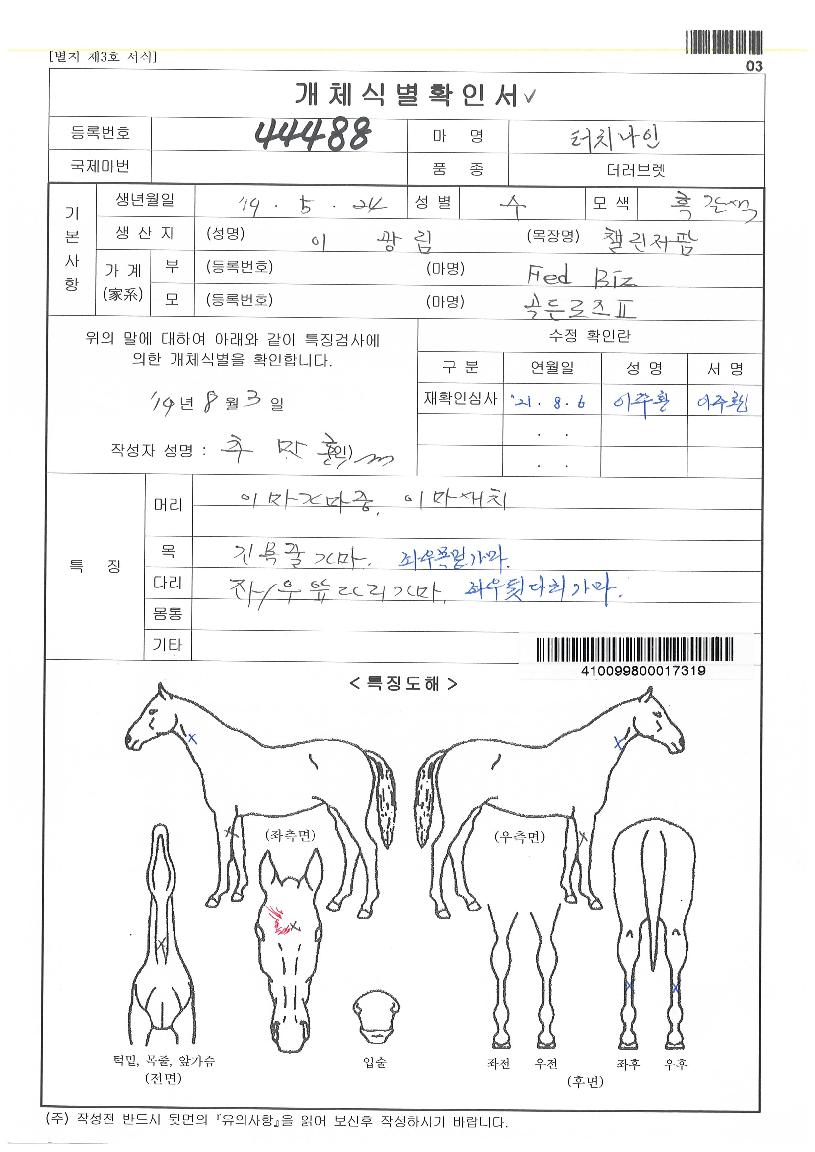 [별지 제3호 서식]
03
개체식별확인서
등록번호 44488 마 명 터치나인
국제마번 품 종 더러브렛
기본사항
생년월일 '19 . 5 . 24 성 별 수 모 색 흑갈색
생 산 지 (성명) 이 광 림 (목장명) 챌린저팜
가 계 (家系) 부 (등록번호) (마명) Fed Biz
모 (등록번호) (마명) 골든로즈Ⅱ
위의 말에 대하여 아래와 같이 특징검사에
의한 개체식별을 확인합니다.
'19년 8월 3일
작성자 성명 : 추 만 (인)
수정 확인란
구 분 연월일 성 명 서 명
재확인심사 '21. 8. 6 이주환
. .
. .
특 징
머리 이마가마중, 이마새치
목 긴목줄가마. 좌우목밑가마.
다리 좌/우 앞다리가마. 좌우뒷다리가마.
몸통
기타
410099800017319
< 특징도해 >
(좌측면) (우측면)
턱밑, 목줄, 앞가슴
(전면)
입술
좌전 우전 좌후 우후
(후면)
(주) 작성전 반드시 뒷면의 『유의사항』을 읽어 보신후 작성하시기 바랍니다.